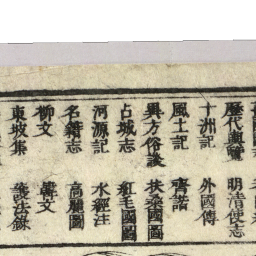 歷代輿覽 明清使志
十洲記 外國傳
風土記 齊諧
異方俗談 扶桑國圖
占城志 紅毛國圖
河源記 水經注
名籍志 高麗圖
柳文 韓文
東坡集 護法錄